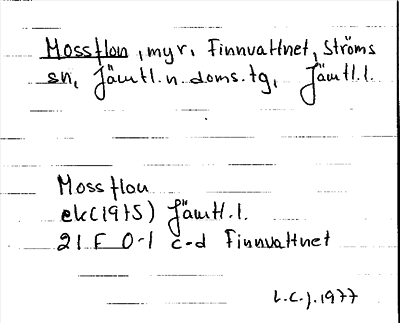 Mossflon, myr, Finnvattnet, Ströms
sn, Jämtl.n.doms.tg, Jämtl.l.
Mossflon
ek(1975) Jämtl.l.
21 F 0-1 c-d Finnvattnet
L.C.J.1977